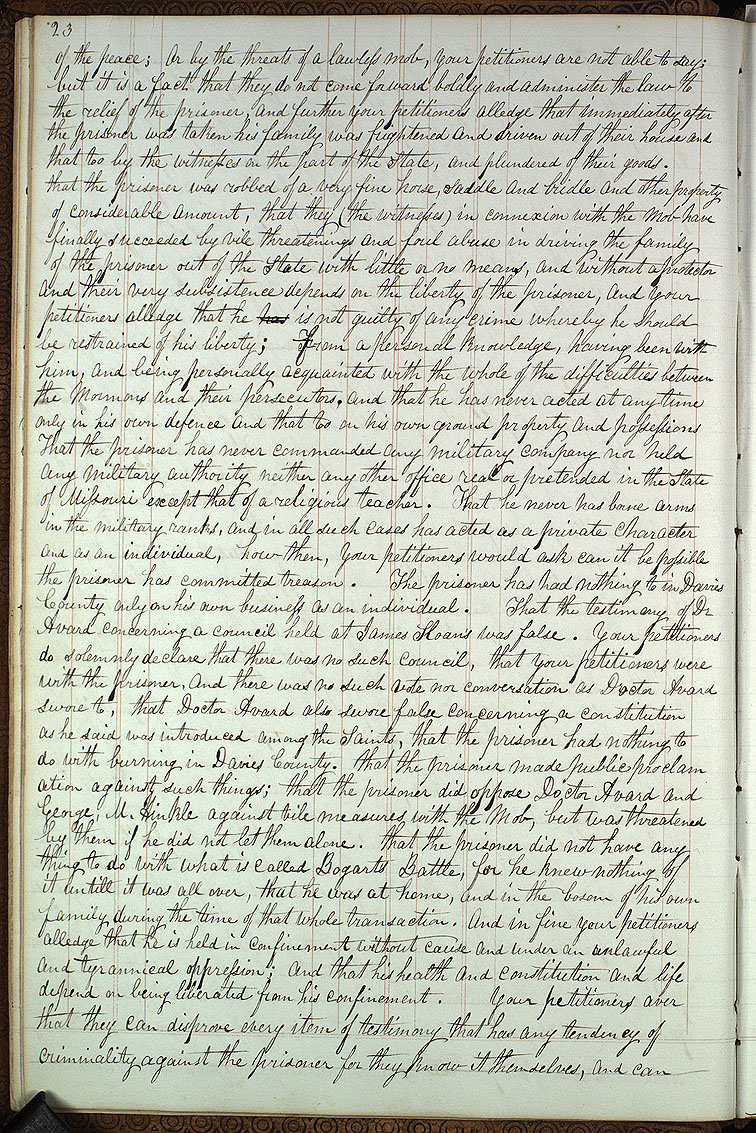 23
of the peace; or by the threats of a lawless mob, your petitioners are not able to say;
but it is a fact that they do not come forward boldly and administer the law to
the relief of the prisoner; and further your petitioners alledge that immediately after
the prisoner was taken his family was frightened and driven out of their house and
that too by the witnesses on the part of the State, and plundered of their goods.
that the prisoner was robbed of a very fine horse, saddle and bridle and other property
of considerable amount, that they (the witnesses) in connexion with the Mob have
finally succeeded by vile threatenings and foul abuse in driving the family
of the prisoner out of the State with little or no means, and without a protector
and their very subsistence depends on the liberty of the prisoner, and your
petitioners alledge that he has is not guilty of any crime whereby he should
be restrained of his liberty; From a personal knowledge, having been with
him, and being personally acquainted with the whole of the difficulties between
the Mormons and their persecutors, and that he has never acted at any time
only in his own defence and that too on his own ground property and possessions
That the prisoner has never commanded any military company nor held
any military authority neither any other office real or pretended in the State
of Missouri except that of a religious teacher. That he never has bone arms
in the military ranks, and in all such cases has acted as a private character
and as an individual, how then, your petitioners would ask can it be possible
the prisoner has committed treason. The prisoner has had nothing to in Davies
County only on his own business as an individual. That the testimony of Dr
Avard concerning a council held at James Sloans was false. Your petitioners
do solemnly declare that there was no such council, that your petitioners were
with the prisoner, and there was no such vote nor conversation as Doctor Avard
swore to. that Doctor Avard also swore false concerning a constitution
as he said was introduced among the Saints, that the prisoner had nothing to
do with burning in Davies County. that the prisoner made public proclam
ation against such things; that the prisoner did oppose Doctor Avard and
George, M. Hinkle against vile measures with the Mob, but was threatened
by them if he did not let them alone. that the prisoner did not have any
thing to do with what is called Bogarts Battle, for he knew nothing of
it untill it was all over, that he was at home, and in the bosom of his own
family during the time of that whole transaction. And in fine your petitioners
alledge that he is held in confinement without cause and under an unlawful
and tyrannical oppression; and that his health and constitution and life
depend on being liberated from his confinement. Your petitioners aver
that they can disprove every item of testimony that has any tendency of
criminality against the prisoner for they know it themselves, and can